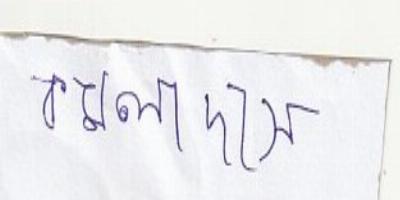 কমলা দাস